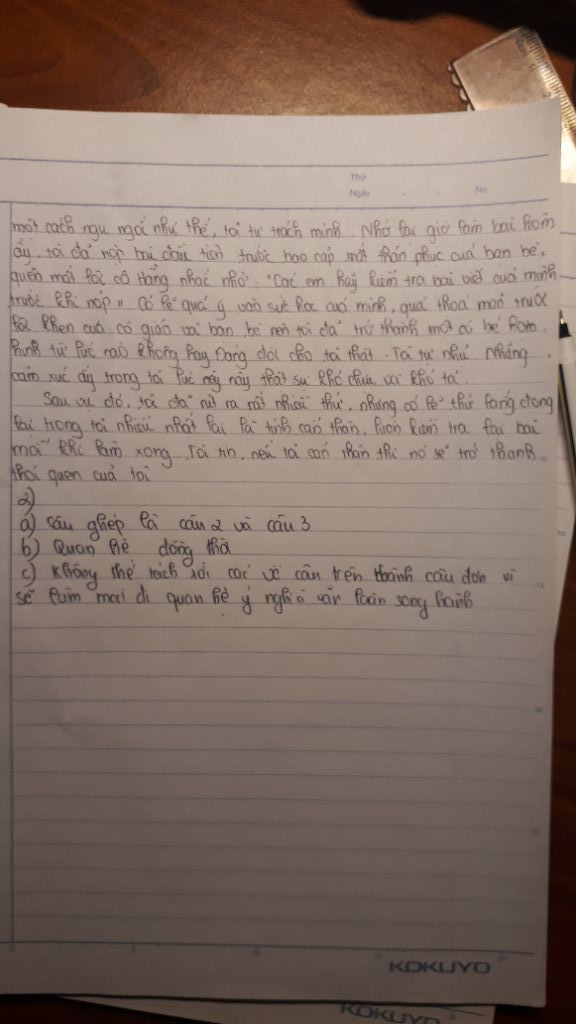 Thứ
Ngày . . No
một cách ngu ngốc như thế, tôi tự trách mình. Nhớ lại giờ làm bài hôm
ấy, tôi đã nộp bài đầu tiên trước bao cặp mắt thán phục của bạn bè,
quên mất lời cô Hằng nhắc nhở. "Các em hãy kiểm tra bài viết của mình
trước khi nộp". Có lẽ quá ý vào sức học của mình, quá thoả mãn trước
lời khen của cô giáo và bạn bè nên tôi đã trở thành một cô bé hợm
hĩnh từ lúc nào không hay. Đáng đời cho tôi thật. Tôi tự nhủ. Những
cảm xúc ấy trong tôi lúc này thật sự khó chịu và khó tả.
Sau vụ đó, tôi đã rút ra rất nhiều thứ, nhưng có lẽ thứ đọng
lại trong tôi nhiều nhất lại là tính cẩn thận, luôn kiểm tra lại bài
mỗi khi làm xong. Tôi tin, nếu tôi cẩn thận thì nó sẽ trở thành
thói quen của tôi
2)
a) Câu ghép là câu 2 và câu 3
b) Quan hệ đồng thời
c) Không thể tách rời các vế câu trên thành câu đơn vì
sẽ làm mất đi quan hệ ý nghĩa song hành
KOKUYO
KOKUYO